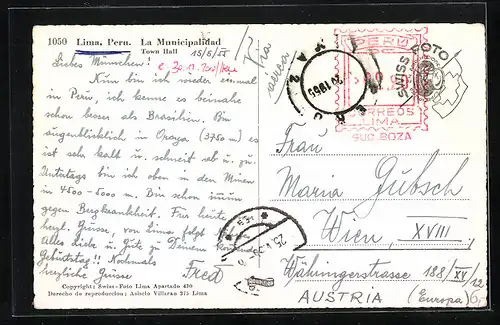 1050 Lima, Peru. La Municipalidad
Town Hall
15/5/55
Via
aerea!
Liebes Münschen!
Nun bin ich wieder einmal
in Peru, ich kenne es beinahe
schon besser als Brasilien. Bin
augenblicklich in Oroya (3750 m) es
ist sehr kalt u. schneit ab u. zu.
Untertags bin ich oben in den Minen
in 4500 - 5000 m. Bin schon immun
gegen Bergkrankheit. Für heute
herzl. Grüsse, von Lima folgt
Alles Liebe u. Gute zu Deinem kommenden
Geburtstag!! Nochmals
herzliche Grüsse Fred
Copyright: Swiss-Foto Lima Apartado 430
Derecho de reproduccion: Asisclo Villaran 215 Lima
PERU
CORREOS
LIMA
SUC. BOZA
1955
SWISS FOTO
Frau
Maria Gubsch
Wien, XVIII
Währingerstrasse 188/XV/12
AUSTRIA (Europa)